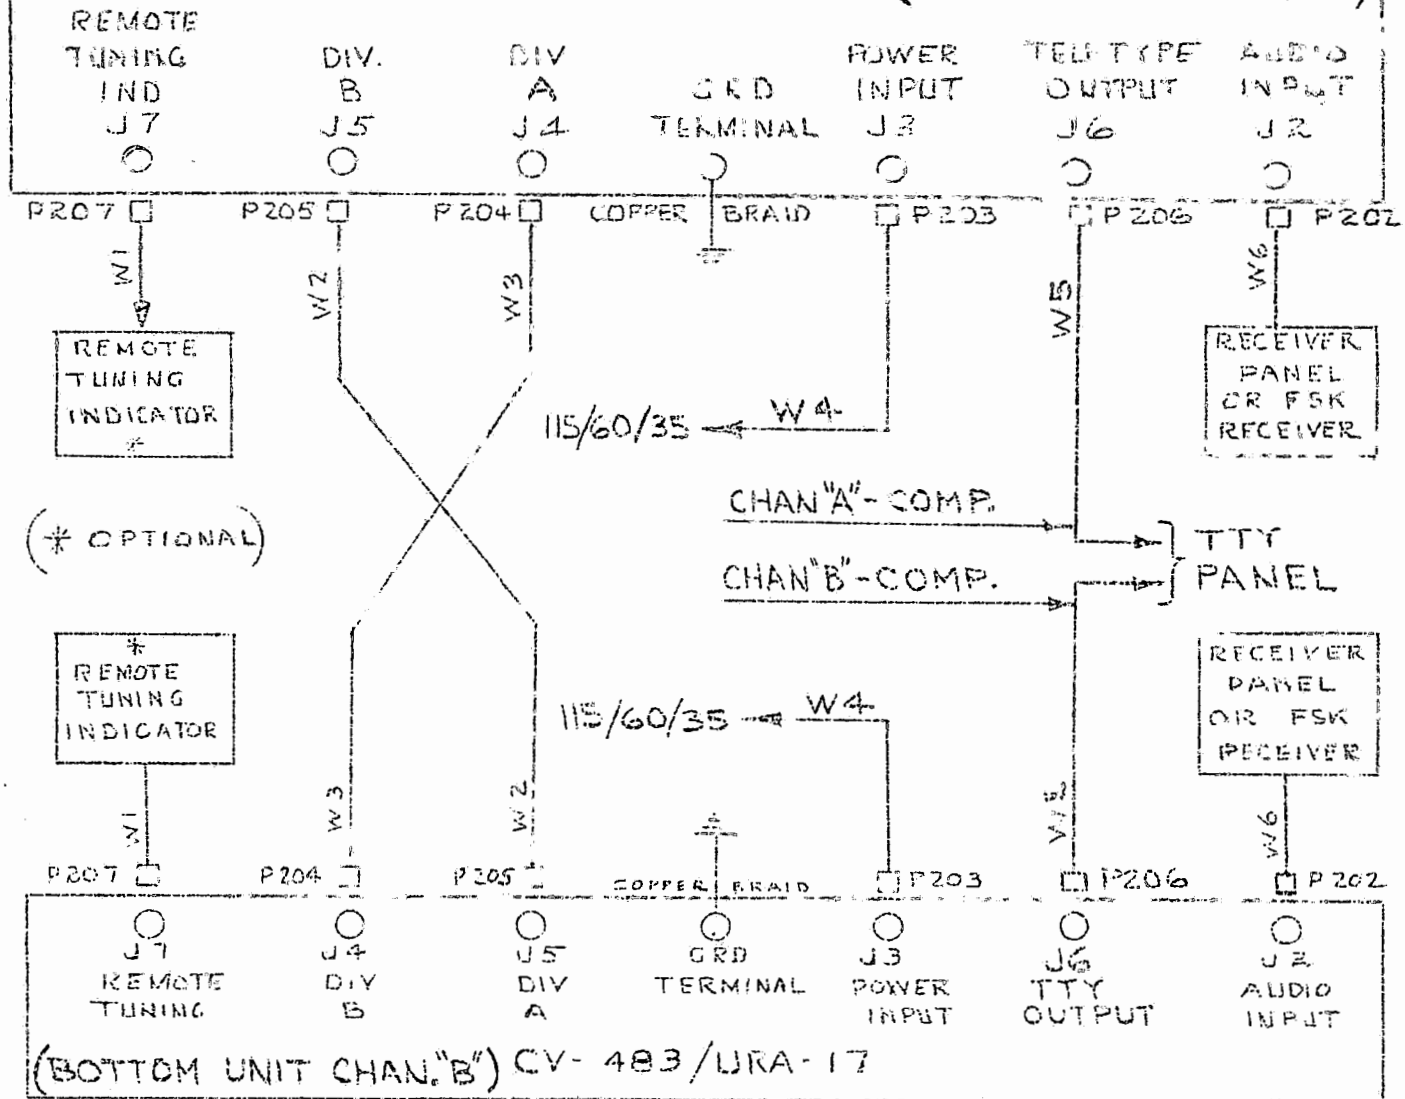 REMOTE
TUNING
IND
J7
DIV.
B
J5
DIV
A
J4
GRD
TERMINAL
POWER
INPUT
J3
TELETYPE
OUTPUT
J6
AUDIO
INPUT
J2
P207
P205
P204
COPPER BRAID
P203
P206
P202
W1
W2
W3
W5
W6
REMOTE
TUNING
INDICATOR
*
115/60/35
W4
RECEIVER
PANEL
OR FSK
RECEIVER
CHAN"A"-COMP.
(* OPTIONAL)
TTY
PANEL
CHAN"B"-COMP.
*
REMOTE
TUNING
INDICATOR
115/60/35
W4
RECEIVER
PANEL
OR FSK
RECEIVER
W1
W3
W2
W6
P207
P204
P205
COPPER BRAID
P203
P206
P202
J7
REMOTE
TUNING
J4
DIV
B
J5
DIV
A
GRD
TERMINAL
J3
POWER
INPUT
J6
TTY
OUTPUT
J2
AUDIO
INPUT
(BOTTOM UNIT CHAN."B") CV-483/URA-17